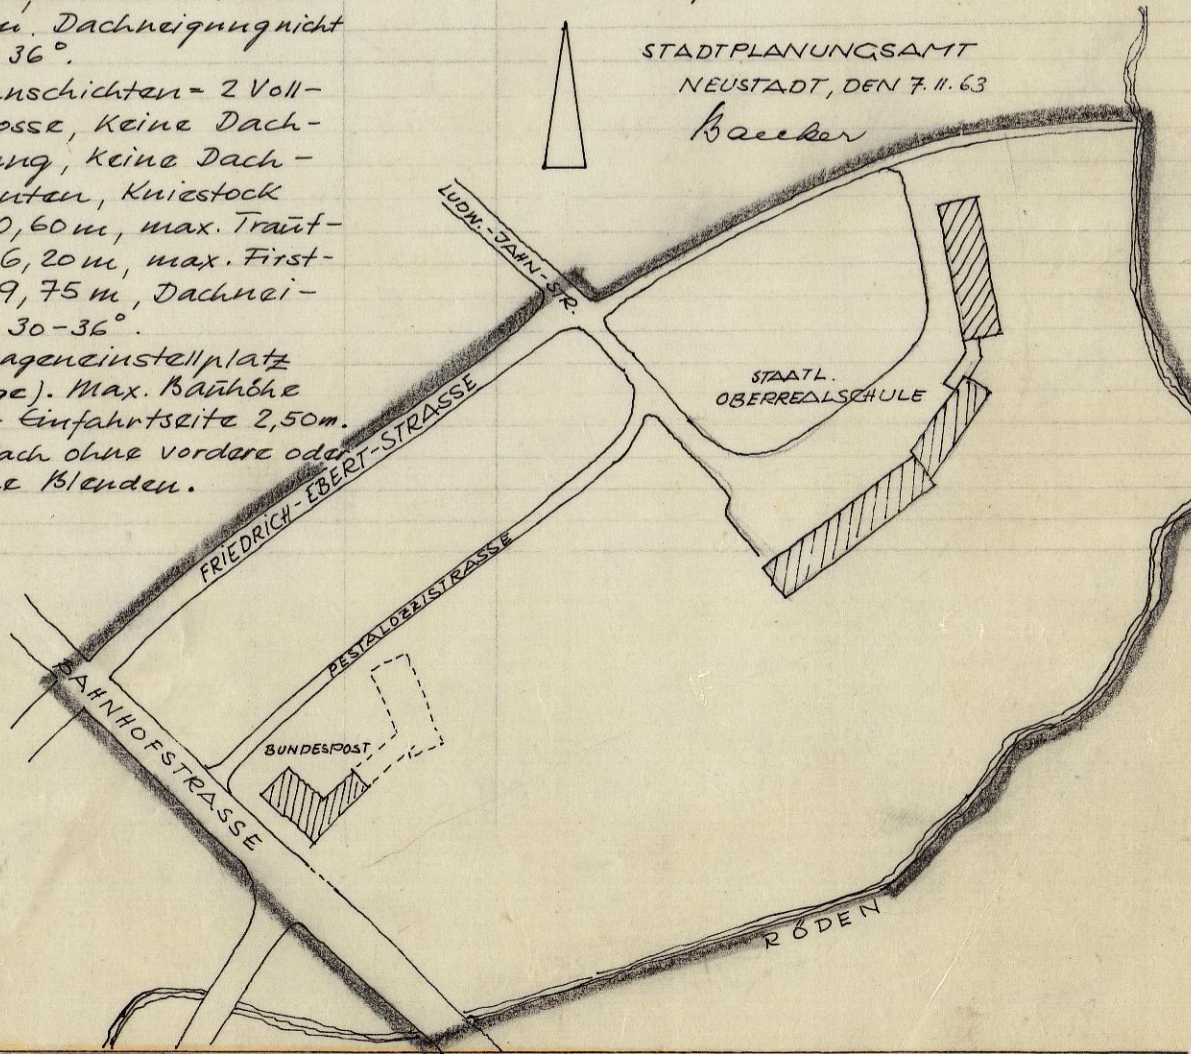 u. Dachneigung nicht
36°.
nschichten = 2 Voll-
osse, Keine Dach-
ung, Keine Dach-
nten, Kniestock
0,60m, max. Traūf-
6,20m, max. First-
9,75m, Dachnei-
30-36°.
ageneinstellplatz
pe). Max. Baūhöhe
Einfahrtseite 2,50m.
ach ohne vordere oder
e Blenden.
STADTPLANUNGSAMT
NEUSTADT, DEN 7.11.63
Baecker
LUDW.-JAHN-STR.
STAATL.
OBERREALSCHULE
FRIEDRICH-EBERT-STRASSE
PESTALOZZISTRASSE
BUNDESPOST
BAHNHOFSTRASSE
RÖDEN